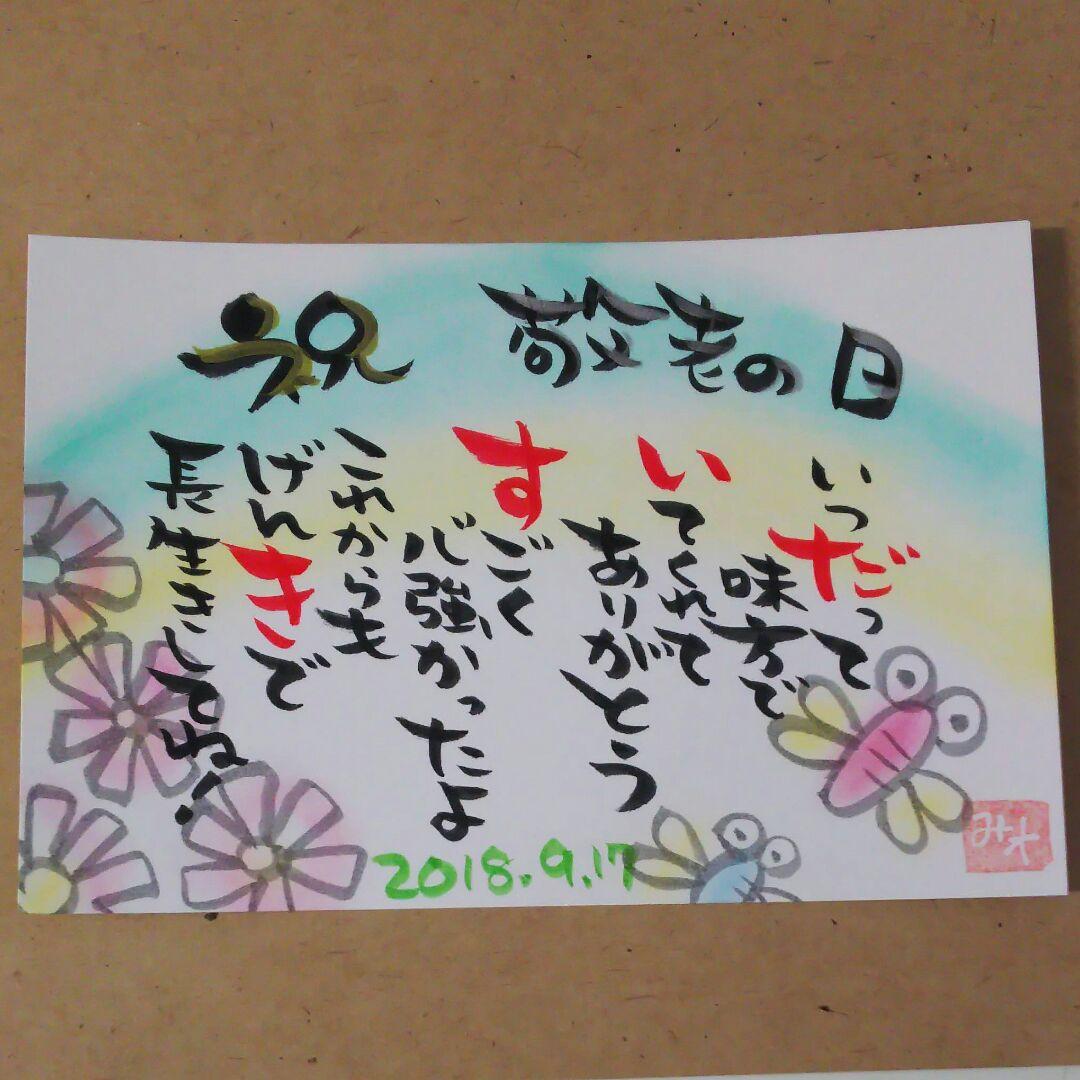 祝 敬老の日
いつだって
味方で
いてくれて
ありがとう
すごく
心強かったよ
これからも
げんきで
長生きしてね!
2018.9.17